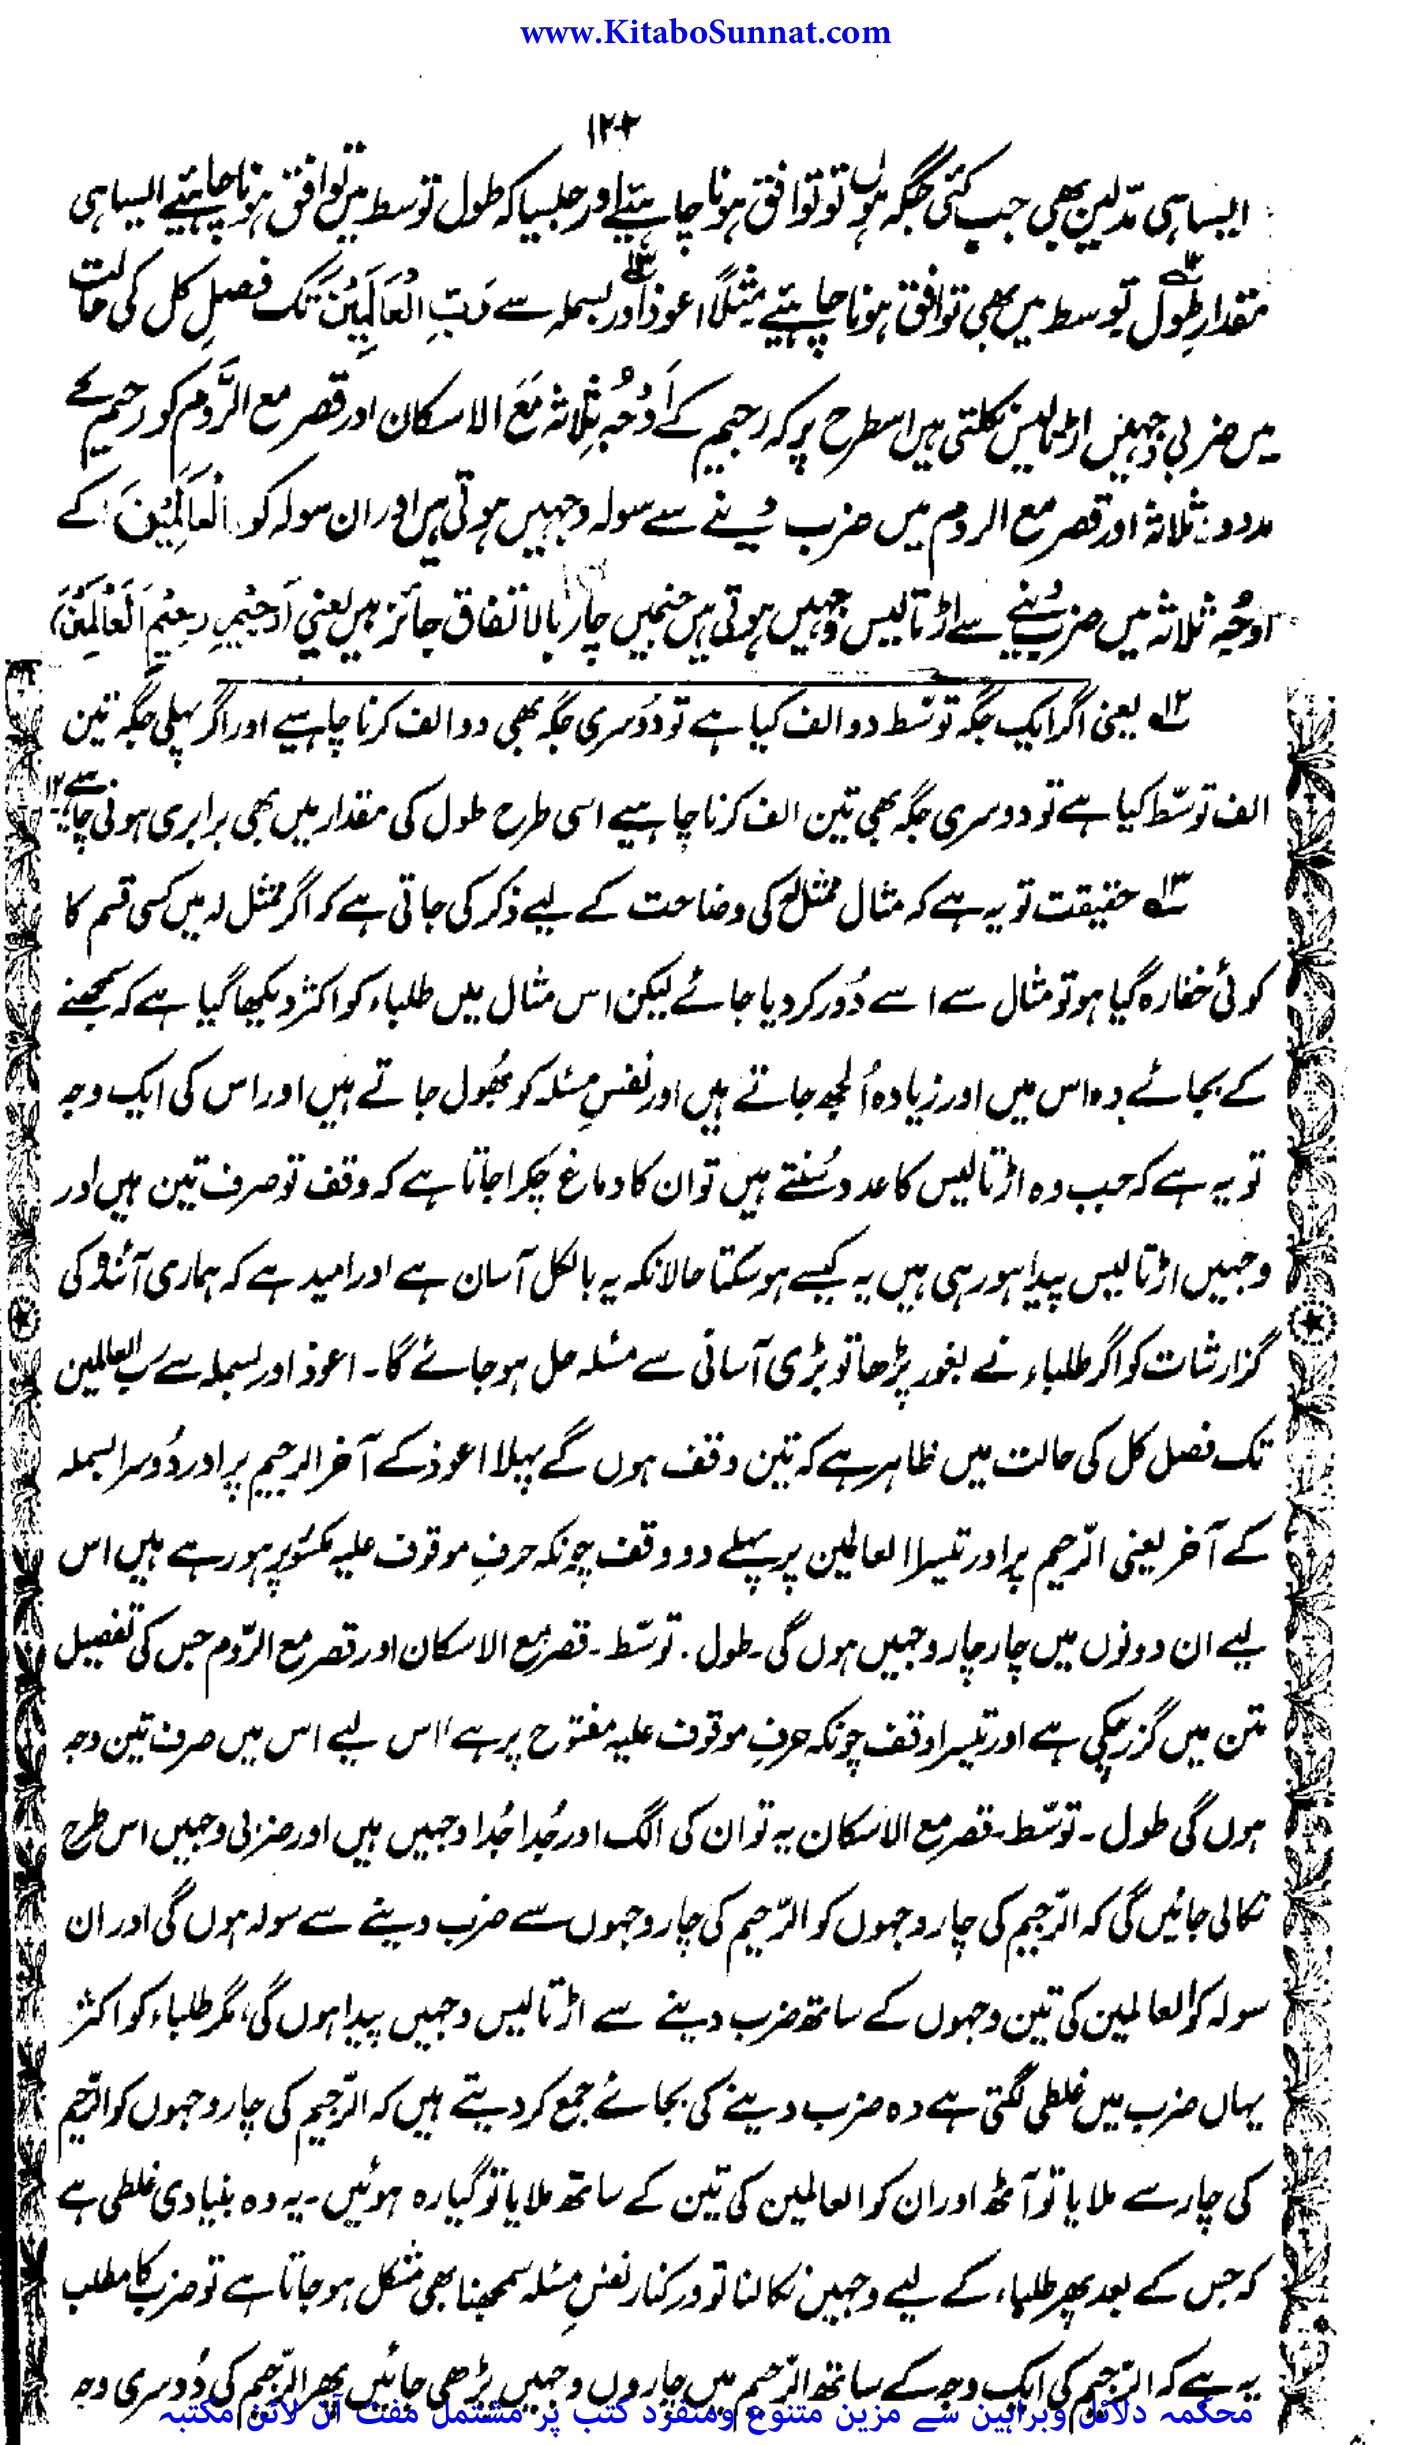 www.KitaboSunnat.com
۱۲۲
ایسا ہی مدّلین بھی جب کئی جگہ ہوں تو توافق ہونا چاہئے اور جیسا کہ طول توسط میں توافق ہونا چاہئیے ایسا ہی
مقدارِ طول توسط میں بھی توافق ہونا چاہئیے مثلاً اعوذ اور بسملہ سے رَبِّ الْعَالَمِیْنَ تک فصلِ کل کی حالت
میں ضربی وجہیں اڑتالیس نکلتی ہیں اسطرح پر کہ رجیم کے اَوْجُہِ ثلاثہ مَعَ الاسکان اور قصر مع الرَّوم کو رحیم کے
مدود ثلاثہ اور قصر مع الروم میں ضرب دینے سے سولہ وجہیں ہوتی ہیں اور ان سولہ کو اَلْعَالَمِیْنَ کے
اوجُہِ ثلاثہ میں ضرب دینے سے اڑتالیس وجہیں ہوتی ہیں جنمیں چار بالاتفاق جائز ہیں یعنی (رَجِیْمِ رحِیْمِ اَلْعَالَمِیْنَ)
۱۲؎ یعنی اگر ایک جگہ توسّط دو الف کیا ہے تو دوسری جگہ بھی دو الف کرنا چاہیے اور اگر پہلی جگہ تین
الف توسّط کیا ہے تو دوسری جگہ بھی تین الف کرنا چاہیے اسی طرح طول کی مقدار میں بھی برابری ہونی چاہیے۔۱۲
۱۳؎ حقیقت تو یہ ہے کہ مثال ممثّل لہ کی وضاحت کے لیے ذکر کی جاتی ہے کہ اگر ممثل لہ میں کسی قسم کا
کوئی خفا رہ گیا ہو تو مثال سے اسے دُور کر دیا جائے لیکن اس مثال میں طلباء کو اکثر دیکھا گیا ہے کہ سمجھنے
کے بجائے وہ اس میں اور زیادہ اُلجھ جاتے ہیں اور نفسِ مسئلہ کو بھُول جاتے ہیں اور اس کی ایک وجہ
تو یہ ہے کہ جب وہ اڑتالیس کا عدد سُنتے ہیں تو ان کا دماغ چکرا جاتا ہے کہ وقف تو صرف تین ہیں اور
وجہیں اڑتالیس پیدا ہو رہی ہیں یہ کیسے ہو سکتا حالانکہ یہ بالکل آسان ہے اور امید ہے کہ ہماری آئندہ کی
گزارشات کو اگر طلباء نے بغور پڑھا تو بڑی آسانی سے مسئلہ حل ہو جائے گا۔ اعوذ اور بسملہ سے رب العالمین
تک فصل کل کی حالت میں ظاہر ہے کہ تین وقف ہوں گے پہلا اعوذ کے آخر الرجیم پر اور دُوسرا بسملہ
کے آخر یعنی الرّحیم پر اور تیسرا العالمین پر پہلے دو وقف چونکہ حرفِ موقوف علیہ مکسُور پر ہو رہے ہیں اس
لیے ان دونوں میں چار چار وجہیں ہوں گی۔ طول۔ توسّط۔ قصر مع الاسکان اور قصر مع الرّوم جس کی تفصیل
متن میں گزر چکی ہے اور تیسرا وقف چونکہ حرفِ موقوف علیہ مفتوح پر ہے اس لیے اس میں صرف تین وجہ
ہوں گی طول۔ توسّط۔ قصر مع الاسکان یہ تو ان کی الگ اور جُدا جُدا وجہیں ہیں اور ضربی وجہیں اس طرح
نکالی جائیں گی کہ الرّجیم کی چار وجہوں کو الرّحیم کی چار وجہوں سے ضرب دینے سے سولہ ہوں گی اور ان
سولہ کو العالمین کی تین وجہوں کے ساتھ ضرب دینے سے اڑتالیس وجہیں پیدا ہوں گی، مگر طلباء کو اکثر
یہاں ضرب میں غلطی لگتی ہے وہ ضرب دینے کی بجائے جمع کر دیتے ہیں کہ الرّجیم کی چار وجہوں کو الرّحیم
کی چار سے ملایا تو آٹھ اور ان کو العالمین کی تین کے ساتھ ملایا تو گیارہ ہوئیں۔ یہ وہ بنیادی غلطی ہے
کہ جس کے بعد پھر طلباء کے لیے وجہیں نکالنا تو درکنار نفسِ مسئلہ سمجھنا بھی مشکل ہو جاتا ہے تو ضرب کا مطلب
یہ ہے کہ الرّجیم کی ایک وجہ کے ساتھ الرّحیم میں چاروں وجہیں پڑھی جائیں پھر الرّجیم کی دُوسری وجہ
محکمہ دلائل وبراہین سے مزین متنوع ومنفرد کتب پر مشتمل مفت آن لائن مکتبہ